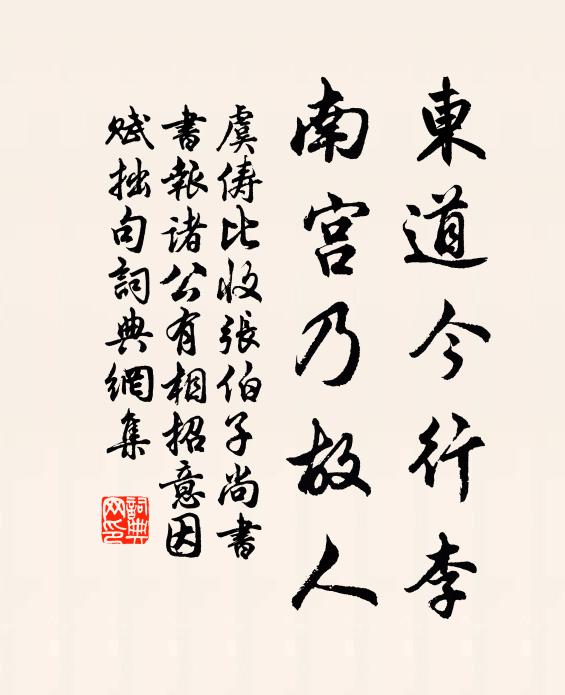 東道今行李
南宫乃故人
虞俦比收張伯子尚書
書報诸公有相招意因
赋拙句詞典網集
詞典网印